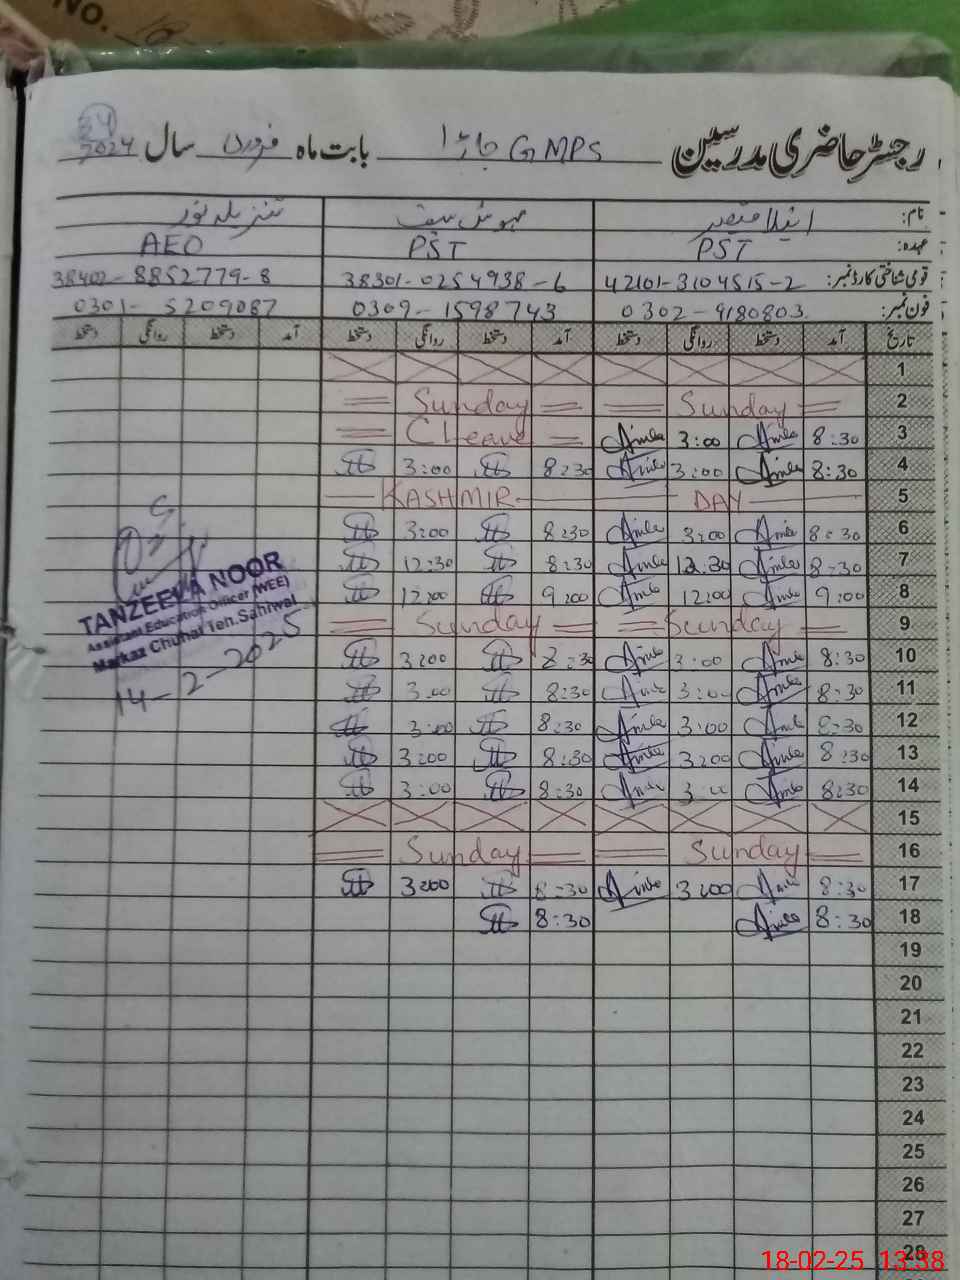 No.
رجسٹر حاضری مدرسین GMPS جاڑا بابت ماہ فروری سال 2024
نام: انیلا منتصر مہوش سیف تنزیلہ نور
عہدہ: PST PST AEO
قومی شناختی کارڈ نمبر: 42101-3104515-2 38301-0254938-6 38402-8852779-8
فون نمبر: 0302-9180803 0309-1598743 0301-5209087
تاریخ آمد دستخط روانگی دستخط آمد دستخط روانگی دستخط آمد دستخط روانگی دستخط
1
2 Sunday Sunday
3 8:30 Anila 3:00 Anila C leave
4 8:30 Anila 3:00 Anila 8:30 3:00
5 KASHMIR DAY
6 8:30 Anila 3:00 Anila 8:30 3:00
7 8:30 Anila 12:30 Anila 8:30 12:30
8 9:00 Anila 12:00 Anila 9:00 12:00
9 Sunday Sunday
10 8:30 Anila 3:00 Anila 8:30 3:00
11 8:30 Anila 3:00 Anila 8:30 3:00
12 8:30 Anila 3:00 Anila 8:30 3:00
13 8:30 Anila 3:00 Anila 8:30 3:00
14 8:30 Anila 3:00 Anila 8:30 3:00
15
16 Sunday Sunday
17 8:30 Anila 3:00 Anila 8:30 3:00
18 8:30 Anila 8:30
19
20
21
22
23
24
25
26
27
28
TANZEELA NOOR
Assistant Education Officer (WEE)
Markaz Chuhal Teh.Sahiwal
14-2-2025
18-02-25 13:38